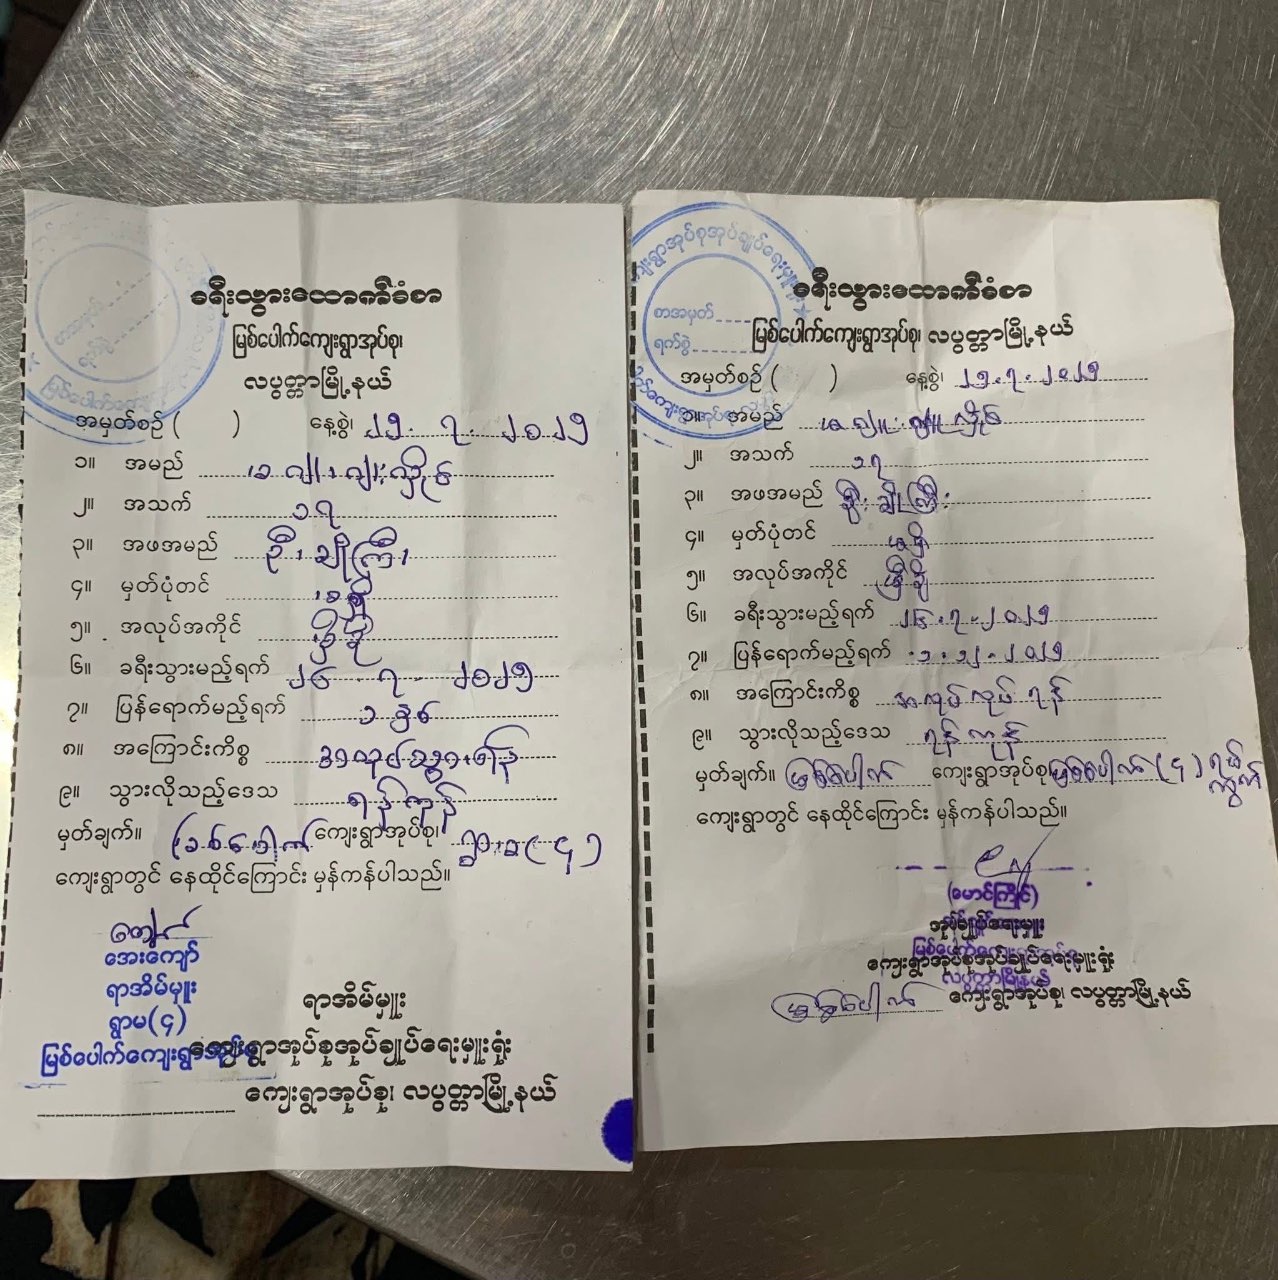 ခရီးသွားထောက်ခံစာ
မြစ်ပေါက်ကျေးရွာအုပ်စု၊
လပွတ္တာမြို့နယ်
အမှတ်စဉ် ( ) နေ့စွဲ၊ ၂၅.၇.၂၀၂၅
၁။ အမည်
၂။ အသက် ၁၇
၃။ အဖအမည် ဦး ချိုကြီး
၄။ မှတ်ပုံတင် မရှိ
၅။ အလုပ်အကိုင်
၆။ ခရီးသွားမည့်ရက် ၂၆.၇.၂၀၂၅
၇။ ပြန်ရောက်မည့်ရက် ၁
၈။ အကြောင်းကိစ္စ
၉။ သွားလိုသည့်ဒေသ ရန်ကုန်
မှတ်ချက်။ မြစ်ပေါက် ကျေးရွာအုပ်စု၊ ရွာမ(၄)
ကျေးရွာတွင် နေထိုင်ကြောင်း မှန်ကန်ပါသည်။
အေးကျော်
ရာအိမ်မှူး
ရွာမ(၄)
မြစ်ပေါက်ကျေးရွာအုပ်စု
ရာအိမ်မှူး
ကျေးရွာအုပ်စုအုပ်ချုပ်ရေးမှူးရုံး
ကျေးရွာအုပ်စု၊ လပွတ္တာမြို့နယ်
ကျေးရွာအုပ်စုအုပ်ချုပ်ရေးမှူး
စာအမှတ်
ရက်စွဲ
ခရီးသွားထောက်ခံစာ
မြစ်ပေါက်ကျေးရွာအုပ်စု၊ လပွတ္တာမြို့နယ်
အမှတ်စဉ် ( ) နေ့စွဲ၊ ၂၅.၇.၂၀၂၅
၁။ အမည်
၂။ အသက် ၁၇
၃။ အဖအမည် ဦး ချိုကြီး
၄။ မှတ်ပုံတင် မရှိ
၅။ အလုပ်အကိုင်
၆။ ခရီးသွားမည့်ရက် ၂၆.၇.၂၀၂၅
၇။ ပြန်ရောက်မည့်ရက် ၁.၁၂.၂၀၂၅
၈။ အကြောင်းကိစ္စ အလုပ်လုပ်ရန်
၉။ သွားလိုသည့်ဒေသ ရန်ကုန်
မှတ်ချက်။ မြစ်ပေါက် ကျေးရွာအုပ်စု မြစ်ပေါက် (၄) ရပ်ကွက်
ကျေးရွာတွင် နေထိုင်ကြောင်း မှန်ကန်ပါသည်။
(မောင်ကြိုင်)
အုပ်ချုပ်ရေးမှူး
ကျေးရွာအုပ်စုအုပ်ချုပ်ရေးမှူးရုံး
လပွတ္တာမြို့နယ်
မြစ်ပေါက် ကျေးရွာအုပ်စု၊ လပွတ္တာမြို့နယ်